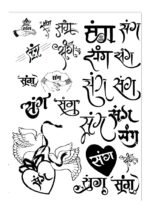 संग
संग संग
संग
संग संग
संग
संग
संग संग
संग संग
संग संग
संग
संग
संग
संग संग